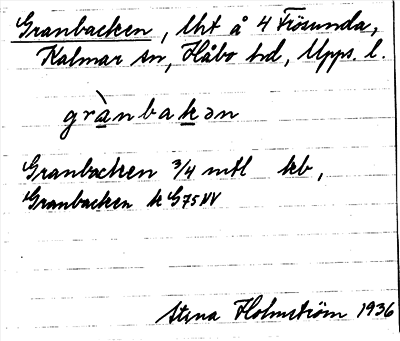 Granbacken, lht å 4 Frösunda,
Kalmar sn, Håbo hd, Upps. l.
grànbakən
Granbacken 3/4 mtl kb,
Granbacken k G75NV
Stina Holmström 1936